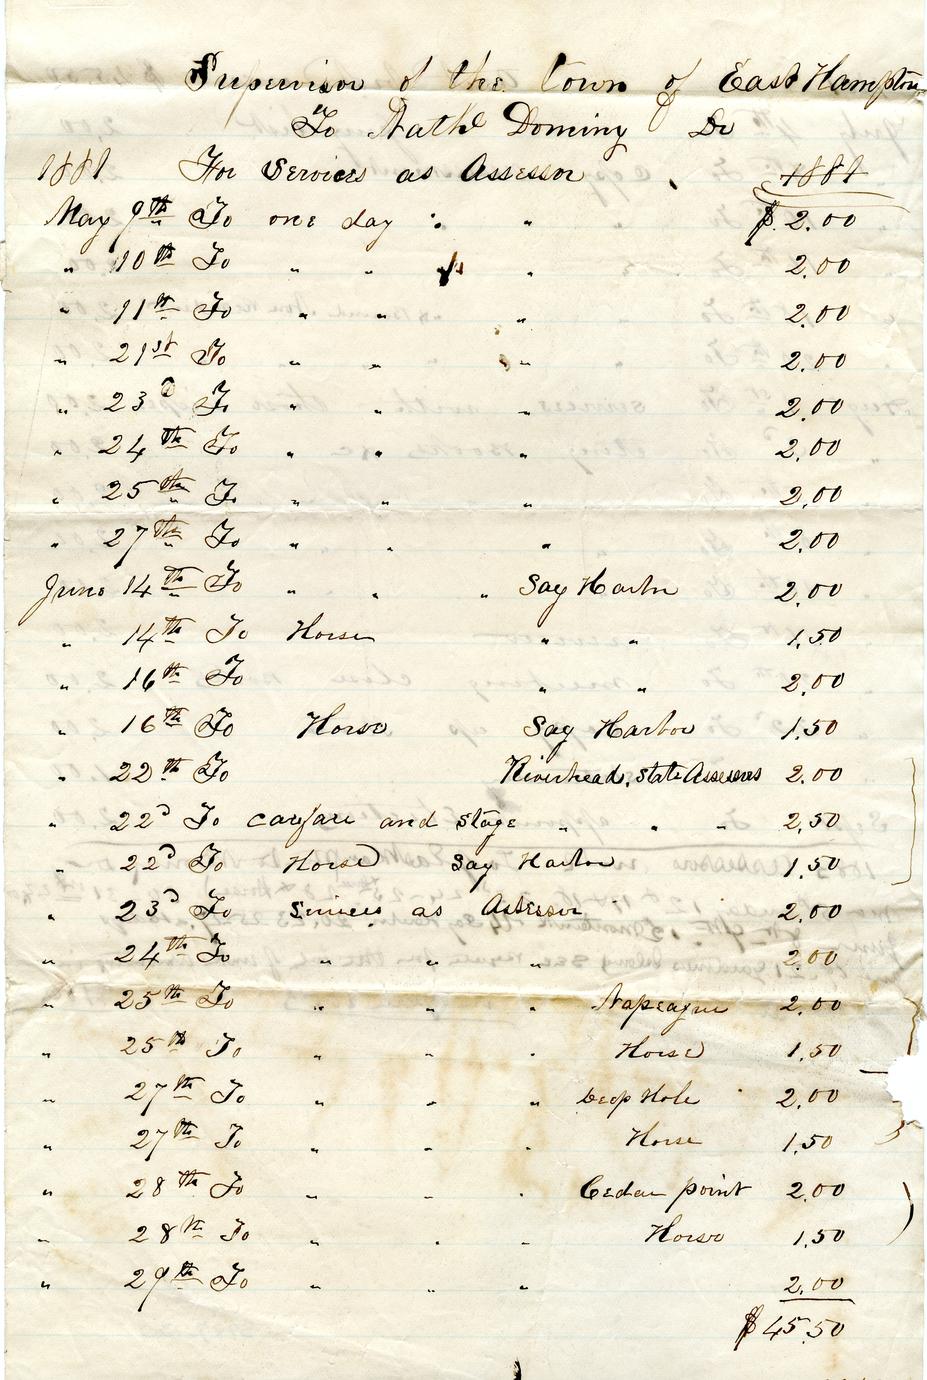 Supervisor of the town of East Hampton
To Nathl Dominy Dr
1881 For Services as Assessor 1881
May 9th To one day " " $2.00
" 10th To " " " 2.00
" 11th To " " " 2.00
" 21st To " " " 2.00
" 23d To " " " 2.00
" 24th To " " " 2.00
" 25th To " " " 2.00
" 27th To " " " 2.00
June 14th To " " " Sag Harbor 2.00
" 14th To Horse " " 1.50
" 16th To " " 2.00
" 16th To Horse Sag Harbor 1.50
" 22th To Riverhead, State Assessors 2.00
" 22d To carfare and stage " " " 2.50
" 22d To Horse Sag Harbor 1.50
" 23d To Services as Assessor 2.00
" 24th To " " " 2.00
" 25th To " " " Napeague 2.00
" 25th To " " " Horse 1.50
" 27th To " " " Deep Hole 2.00
" 27th To " " " Horse 1.50
" 28th To " " " Cedar point 2.00
" 28th To " " " Horse 1.50
" 29th To " " " 2.00
$45.50